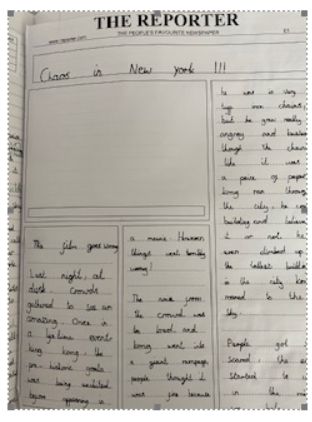 THE REPORTER
www.reporter.com
THE PEOPLE'S FAVOURITE NEWSPAPER
£1
Chaos in New york !!!
The film goes wrong
Last night, at
dusk, crowds
gathered to see an
amazing. Once in
a life time event
king kong, the
pre-historic gorila
was being exhibited
before appearing in
a movie. However
things went terribly
wrong!
The noise from
the crowd was
to loud and
kong went into
a giant rampage,
people thought it
was fine because
he was in very
iron chains,
but he grew really
angrey and
though the chains
like it was
a peice of paper
kong ran through
the city, he
building and believe
it or not he
even climbed up
the tallest
in the city
to the
sky.
People got
scared, the
started to
in the